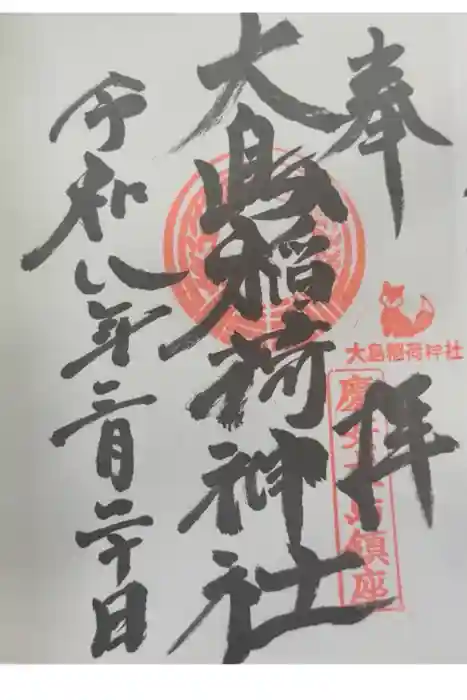 奉拝
大島稲荷神社
慶安 島鎮座
大島稲荷神社
令和八年三月二十日